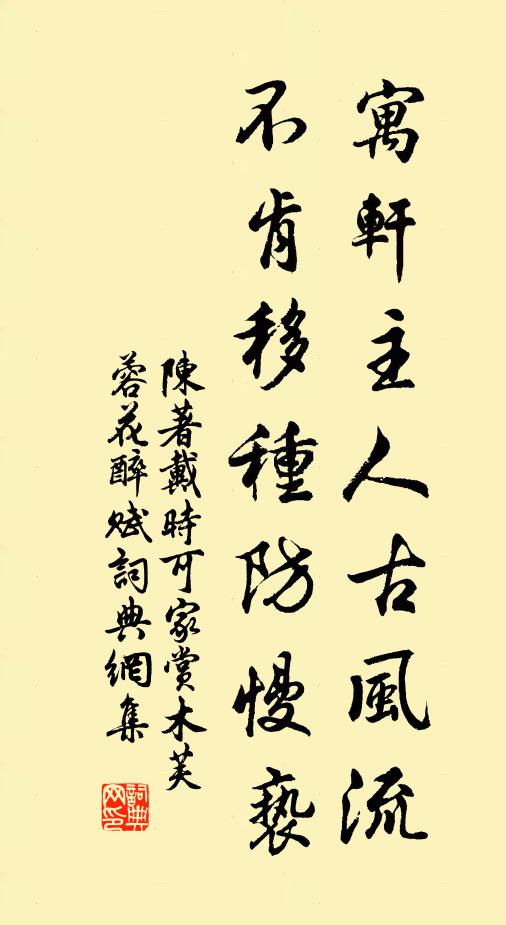 寓軒主人古風流
不肯移種防慢褻
陳著戴時可家賞木芙
蓉花醉賦詞典網集
詞典
網印